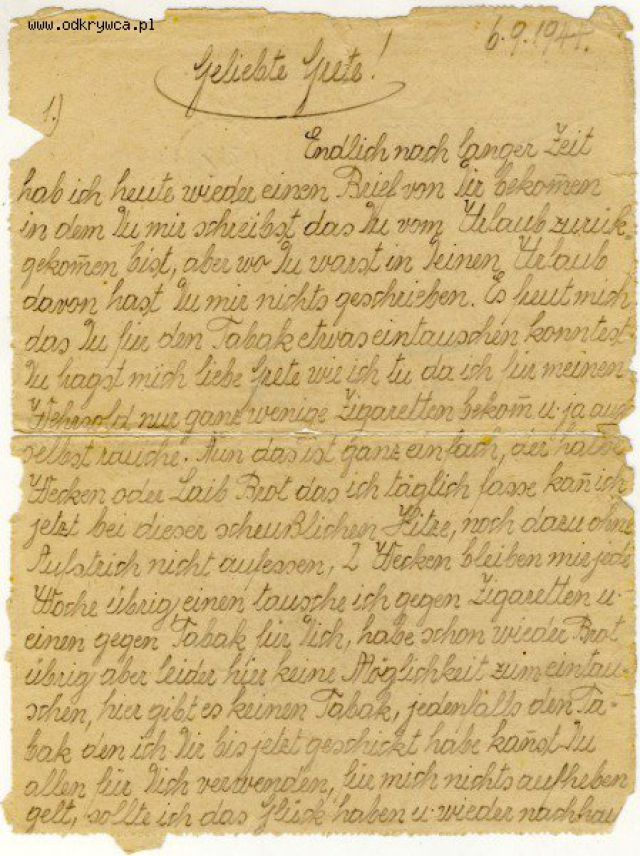 www.odkrywca.pl
6.9.1944.
Geliebte Grete!
1.)
Endlich nach langer Zeit
hab ich heute wieder einen Brief von Dir bekom̄en
in dem Du mir schreibst das Du vom Urlaub zurük-
gekom̄en bist, aber wo Du warst in Deinen Urlaub
davon hast Du mir nichts geschrieben. Es freut mich
das Du für den Tabak etwas eintauschen konntest.
Du fragst mich liebe Grete wie ich tu da ich für meinen
Wehrsold nur ganz wenige Zigaretten bekom̄ u. ja auch
selbst rauche. Nun das ist ganz einfach, der halbe
Wecken oder Laib Brot das ich täglich fasse kan̄ ich
jetzt bei dieser scheußlichen Hitze, noch dazu ohne
Aufstrich nicht aufessen, 2 Wecken bleiben mir jede
Woche übrig, einen tausche ich gegen Zigaretten u.
einen gegen Tabak für Dich, habe schon wieder Brot
übrig aber leider hier keine Möglichkeit zum eintau-
schen, hier gibt es keinen Tabak, jedenfalls den Ta-
bak den ich Dir bis jetzt geschickt habe kan̄st Du
allen für Dich verwenden, für mich nichts aufheben
gelt, sollte ich das Glück haben u. wieder nachhau